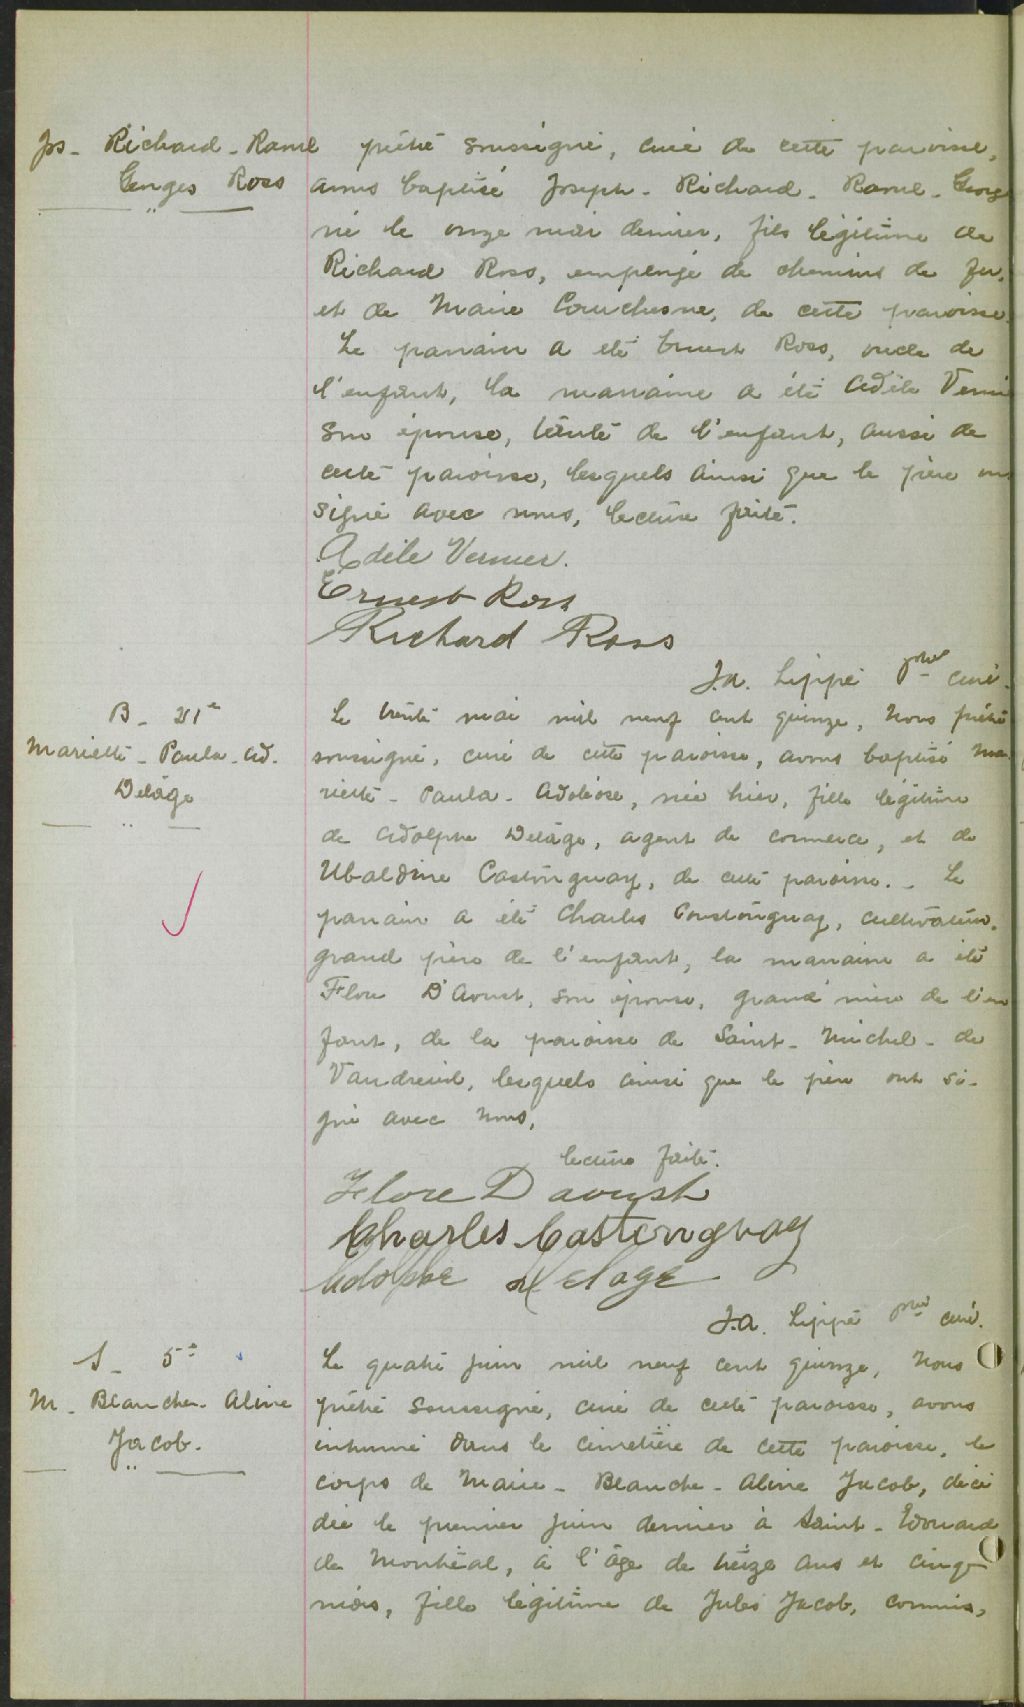 Jos - Richard - Raoul
Georges Ross
prêtre soussigné, curé de cette paroisse,
avons baptisé Joseph - Richard - Raoul - Georg
né le onze mai dernier, fils légitime de
Richard Ross, employé de chemins de fer,
et de Marie Courchesne, de cette paroisse.
Le parrain a été Ernest Ross, oncle de
l'enfant, la marraine a été Adèle Verni
son épouse, tante de l'enfant, aussi de
cette paroisse, lesquels ainsi que le père on
signé avec nous, lecture faite.
Adèle Vernier.
Ernest Ross
Richard Ross
J.A. Lippé ptre curé.
B - 21e
Mariette - Paula - Ad.
Delâge
Le trente mai mil neuf cent quinze, Nous prêtre
soussigné, curé de cette paroisse, avons baptisé Ma
riette - Paula - , née hier, fille légitime
de Adolphe Delâge, agent de commerce, et de
Ubaldine Castonguay, de cette paroisse. - Le
parrain a été Charles Constonguay, cultivateur,
grand père de l'enfant, la marraine a été
Flore D'Aoust, son épouse, grand' mère de l'en
fant, de la paroisse de Saint - Michel - de
Vaudreuil, lesquels ainsi que le père ont si-
gné avec nous,
lecture faite.
Flore Daoust
Charles Castonguay
Adolphe Delage
J.A. Lippé ptre curé.
S - 5e
M - Blanche - Aline
Jacob.
Le quatre juin mil neuf cent quinze, Nous
prêtre soussigné, curé de cette paroisse, avons
inhumé dans le cimetière de cette paroisse, le
corps de Marie - Blanche - Aline Jacob, décé
dée le premier juin dernier à Saint - Edouard
de Montréal, à l'âge de treize ans et cinq
mois, fille légitime de Jules Jacob, commis,